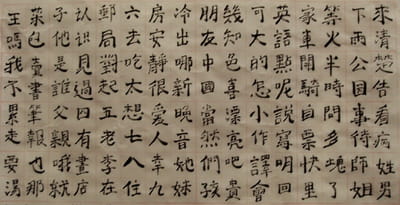 來清楚告看病姓男
下雨公園事侍師姐
等火半時間多塊了
家車開騎自票快里
英語點呢說寫明回
可大的怎小作譯會
幾知色喜漂亮吧貴
朋友中國當然們孩
冷出哪新晚音她妹
房安靜很愛人幸九
六去吃太想七八住
郵局對起五老李在
認識見過四有書店
子他是誰父親哦就
菜包賣書筆報也那
王嗎我不累走要湯